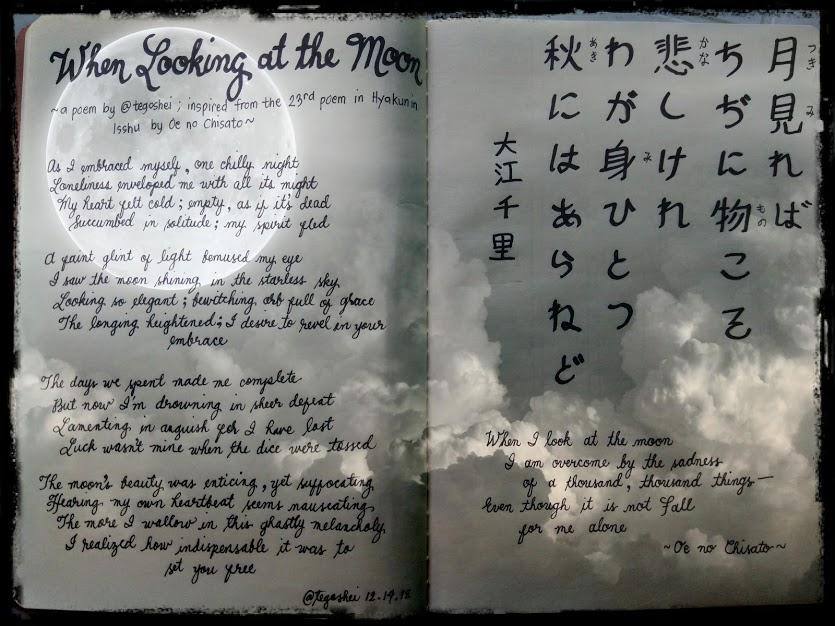 When Looking at the Moon
~a poem by @tegoshei ; inspired from the 23rd poem in Hyakunin
Isshu by Oe no Chisato~
As I embraced myself, one chilly night
Loneliness enveloped me with all its might
My heart felt cold ; empty, as if it's dead
Succumbed in solitude ; my spirit fled
A faint glint of light bemused my eye
I saw the moon shining in the starless sky
Looking so elegant ; bewitching orb full of grace
The longing heightened ; I desire to revel in your
embrace
The days we spent made me complete
But now I'm drowning in sheer defeat
Lamenting in anguish for I have lost
Luck wasn't mine when the dice were tossed
The moon's beauty was enticing, yet suffocating
Hearing my own heartbeat seems nauseating
The more I wallow in this ghastly melancholy
I realized how indispensable it was to
set you free
@tegoshei 12.14.18
月見れば
つき み
ちぢに物こそ
もの
悲しけれ
かな
わが身ひとつ
み
秋にはあらねど
あき
大江千里
When I look at the moon
I am overcome by the sadness
of a thousand, thousand things—
Even though it is not Fall
for me alone
~Oe no Chisato~